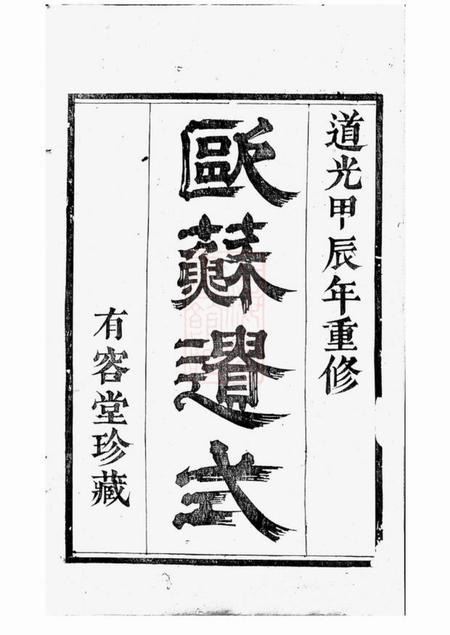 道光甲辰年重修
歐蘇遺式
有容堂珍藏